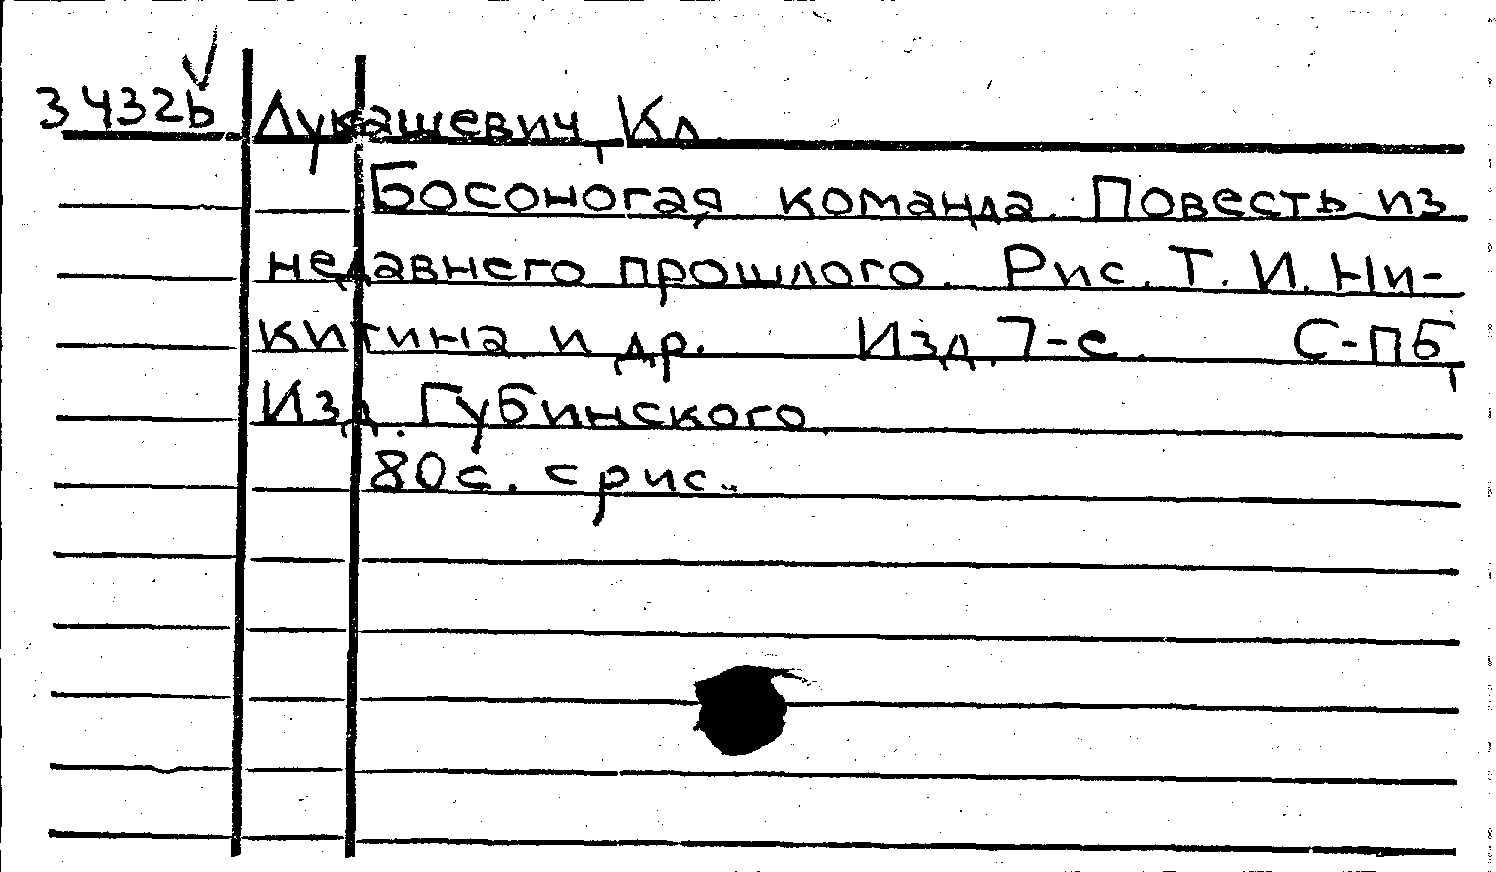 3432b Лукашевич, Кл.
Босоногая команда. Повесть из
недавнего прошлого. Рис. Т. И. Ни-
китина и др. Изд. 7-е. С-ПБ,
Изд. Губинского
80с. с рис.